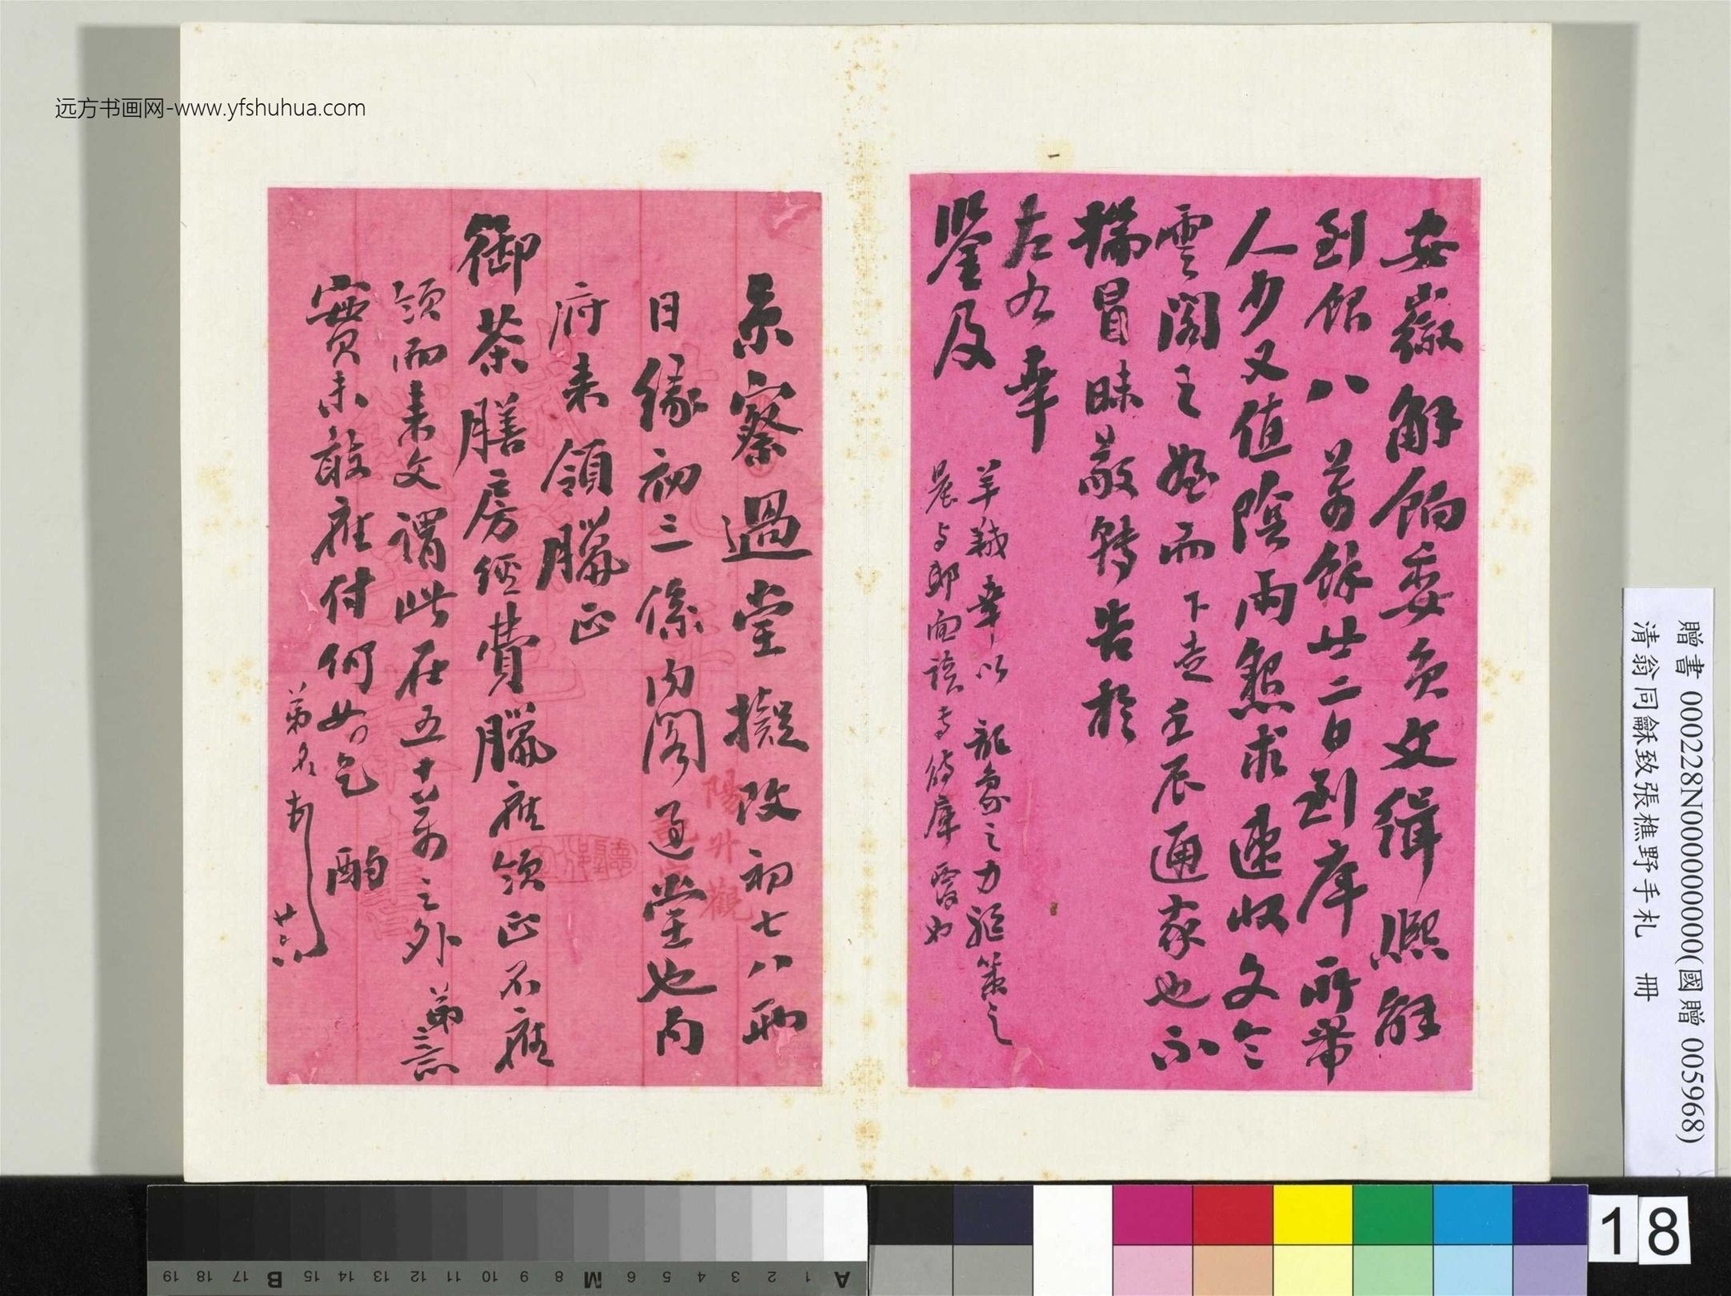 远方书画网-www.yfshuhua.com
安徽解餉委員文緝熙解
到餉八萬餘廿二日到庫所帶
人少又值陰雨懇求速收文令
雲閣之姪而下走壬辰通家也不
揣冒昧敬轉告於
左右幸
鑒及
羊 幸以龍象之力 策之
晨与郎面談 庫 也
京察過堂擬改初七八兩
日緣初三係內閣過堂也內
府来領臘正
御茶膳房經費臘應領正不應
領而来文謂此在五十萬之外弟意
實未敢應付何如乞酌
弟名 廿六
陽升觀
贈書 000228N000000000(國贈 005968)
清翁同龢致張樵野手札 冊
A 1 2 3 4 5 6 M 8 9 10 11 12 13 14 15 B 17 18 19
18